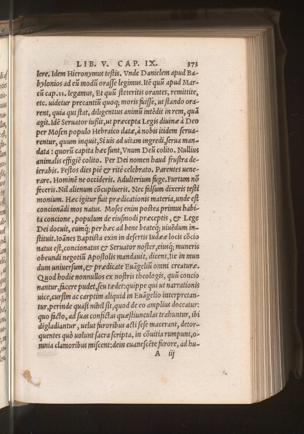 LIB. V. CAP. IX. 373
lere. Idem Hieronymus testis. Vnde Danielem apud Ba-
bylonios ad eũ modũ orasse legimus. Itẽ quũ apud Mar-
cũ cap. 11. legamus, Et quũ steteritis orantes, remittite,
etc. uidetur precantiũ quoq; moris fuisse, ut stando ora-
rent, quia qui stat, diligentius animũ intẽdit in rem, quã
agit. Idẽ Seruator iussit, ut præcepta Legis diuinæ à Deo
per Mosen populo Hebraico data, à nobis itidem serua-
rentur, quum inquit, Si uis ad uitam ingredi, serua man-
data: quorũ capita hæc sunt, Vnum Deũ colito. Nullius
animalis effigiẽ colito. Per Dei nomen haud frustra de-
ierabis. Festos dies piè & ritè celebrato. Parentes uene-
rare. Hominẽ ne occideris. Adulterium fuge. Furtum nõ
feceris. Nil alienum cõcupiueris. Nec falsum dixeris testi
monium. Hæc igitur fuit prædicationis materia, unde est
concionãdi mos natus. Moses enim postea primus habi-
ta concione, populum de eiusmodi præceptis, & Lege
Dei docuit, eumq; per hæc ad bene beateq; uiuẽdum in-
stituit. Ioãnes Baptista exin in desertis Iudææ locis cõcio
natus est, concionatus & Seruator noster, eiusq; muneris
obeundi negotiũ Apostolis mandauit, dicens, Ite in mun
dum uniuersum, & prædicate Euãgeliũ omni creaturæ.
Quod hodie nonnullos ex nostris theologis, quũ concio
nantur, facere pudet, seu tædet: quippe qui ut narrationis
uice, cursim ac carptim aliquid in Euãgelio interpretan-
tur, perinde quasi nihil sit, quod de eo amplius doceatur:
quo facto, ad suas confictas quæstiunculas trahuntur, ibi
digladiantur, uelut furoribus acti sese macerant, detor-
quentes quò uolunt sacra scripta, in cõuitia rumpunt, o-
mnia clamoribus miscent: dein euanescẽte furore, ad hu-
A iij